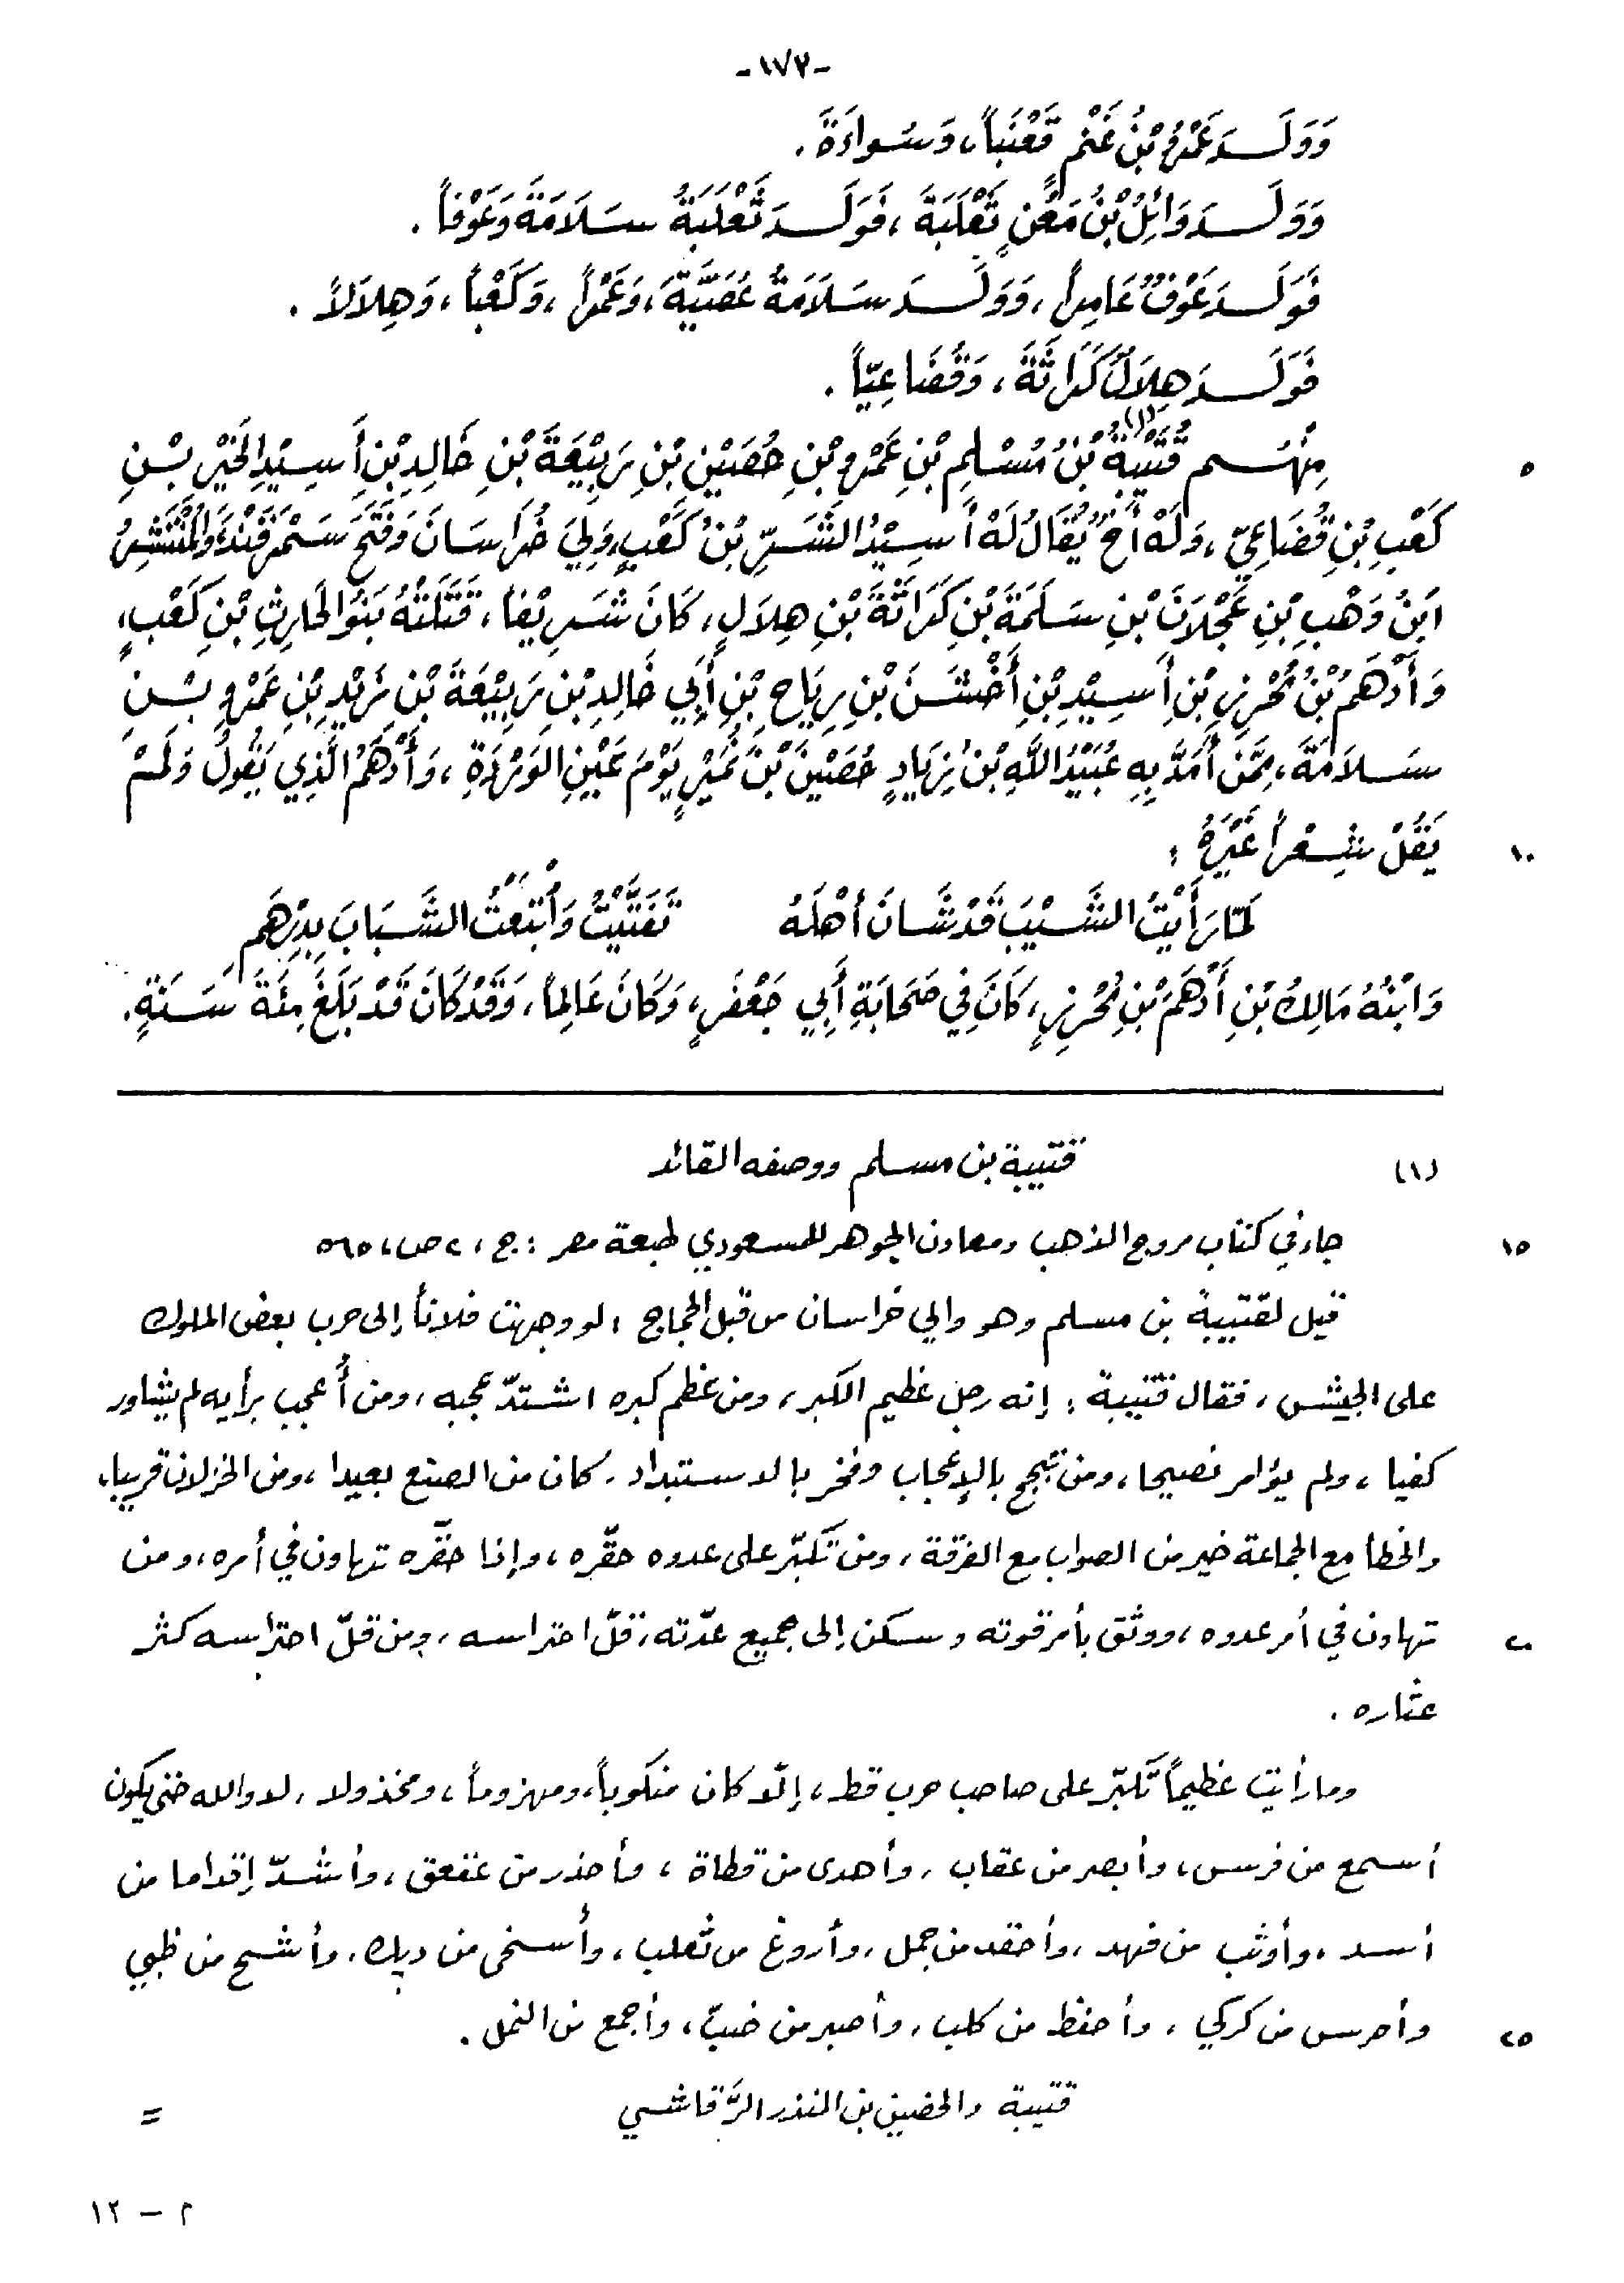 -١٧٣-
وَوَلَـدَ عَمْرُو بْنُ غَنْمٍ قَعْنَباً، وَسُوَاءَةَ .
وَوَلَـدَ وَائِلُ بْنُ مَعْنٍ ثَعْلَبَةَ ، فَوَلَـدَ ثَعْلَبَةُ سَلَامَةَ وَعَوْفاً .
فَوَلَـدَ عَوْفٌ عَامِراً ، وَوَلَـدَ سَلَامَةُ عُصَيَّةَ ، وَعَمْراً ، وَكَعْباً ، وَهِلَالاً .
فَوَلَـدَ هِلَالٌ كَرَاثَةَ ، وَقُضَاعِيّاً .
٥ مِنْهُـم قُتَيْبَةُ (١) بْنُ مُسْلِمِ بْنِ عَمْرِو بْنِ حُصَيْنِ بْنِ رَبِيْعَةَ بْنِ خَالِدِ بْنِ أَسِيْدِ الخَيْرِ بْـنِ
كَعْبِ بْنِ قُضَاعِيّ ، وَلَهُ أَخٌ يُقَالُ لَهُ أَسِيْدُ الشَّـرِّ بْنُ كَعْبٍ ، وَلِيَ خُرَاسَانَ وَفَتَحَ سَمَرْقَنْدَ ، وَالمُنْتَشِرُ
ابنُ وَهْبِ بْنِ عَجْلَانَ بْنِ سَلَمَةَ بْنِ كَرَاثَةَ بْنِ هِلَالٍ ، كَانَ شَرِيْفاً ، قَتَلَتْهُ بَنُو الحَارِثِ بْنِ كَعْبٍ ،
وَأَدْهَمُ بْنُ مُحْرِزِ بْنِ أَسِيْدِ بْنِ أَخْشَـنَ بْنِ رِيَاحِ بْنِ أَبِي خَالِدِ بْنِ رَبِيْعَةَ بْنِ زَيْدِ بْنِ عَمْرِو بْـنِ
سَـلَامَةَ ، مِمَّن أَمَدَّ بِهِ عُبَيْدُ اللَّهِ بْنُ زِيَادٍ حُصَيْنَ بْنَ نُمَيْرٍ يَوْمَ عَيْنِ الوَرْدَةِ ، وَأَدْهَمُ الَّذِي يَقُولُ وَلَـمْ
١٠ يَقُلْ شِـعْراً غَيْرَهُ :
لَمَّا رَأَيْتُ الشَّـيْبَ قَدْ شَانَ أَهْلَهُ تَفَتَّيْتُ وَابْتَعْتُ الشَّـبَابَ بِدِرْهَمِ
وَابْنُهُ مَالِكُ بْنِ أَدْهَمَ بْنِ مُحْرِزٍ ، كَانَ فِي صَحَابَةِ أَبِي جَعْفَرٍ ، وَكَانَ عَالِماً ، وَقَدْ كَانَ قَدْ بَلَغَ مِئَةَ سَـنَةٍ .
(١) قتيبة بن مسـلم ووصفه القائد
١٥ جاء في كتاب مروج الذهب ومعادن الجوهر للمسعودي طبعة مصر : ج ، ٢ ص ، ٥٦٥
قيل لقتيبة بن مسلم وهو والي خراسان من قبل الحجاج : لو وجهت فلاناً إلى حرب بعض الملوك
على الجيش ، فقال قتيبة : إنه رجل عظيم الكبر ، ومن عظم كبره اشتدّ عجبه ، ومن أُعجب برأيه لم يشاور
كفيا ، ولم يؤامر نصيحا ، ومن تبجح بالإعجاب وفخر بالاستبداد ، كان من الصنع بعيدا ، ومن الخذلان قريبا ،
والخطأ مع الجماعة خير من الصواب مع الفرقة ، ومن تكبّر على عدوه حقّره ، وإذا حقّره تهاون في أمره ، ومن
٢٠ تهاون في أمر عدوه ، ووثق بأمر قوته وسكن إلى جميع عدّته ، قلّ احتراسه ، ومن قلّ احتراسه كثر
عثاره .
وما رأيت عظيماً تكبّر على صاحب حرب قط ، إلّا كان منكوباً ، ومهزوماً ، ومخذولا ، لا والله حتى يكون
أسمع من فرس ، وأبصر من عقاب ، وأهدى من قطاة ، وأحذر من عقعق ، وأشدّ إقداما من
أسد ، وأوثب من فهد ، وأحقد من جمل ، وأروغ من ثعلب ، وأسخى من ديك ، وأشح من ظبي
٢٥ وأحرس من كركي ، وأحفظ من كلب ، وأصبر من ضبّ ، وأجمع من النمل .
قتيبة والحضين بن المنذر الرَّقاشـي
=
٢ – ١٢